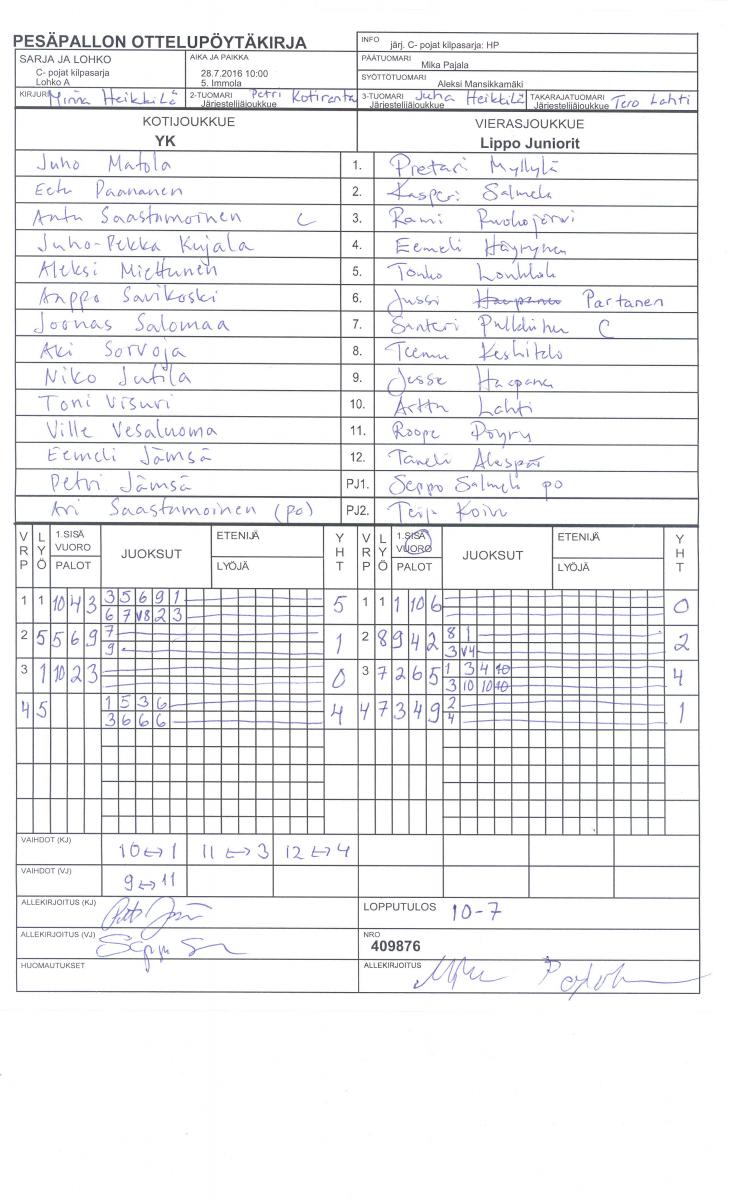 PESÄPALLON OTTELUPÖYTÄKIRJA
INFO järj. C- pojat kilpasarja: HP
SARJA JA LOHKO
C- pojat kilpasarja
Lohko A
AIKA JA PAIKKA
28.7.2016 10:00
5. Immola
PÄÄTUOMARI Mika Pajala
SYÖTTÖTUOMARI Aleksi Mansikkamäki
KIRJURI Minna Heikkilä
2-TUOMARI Petri Kotiranta
Järjestelijäjoukkue
3-TUOMARI Juha Heikkilä
Järjestelijäjoukkue
TAKARAJATUOMARI Tero Lahti
Järjestelijäjoukkue
KOTIJOUKKUE VIERASJOUKKUE
YK Lippo Juniorit
Juho Matola 1. Pretari Myllylä
Eetu Paananen 2. Kasperi Salmela
Antu Saastamoinen C 3. Rami Ruohojärvi
Juho-Pekka Kujala 4. Eemeli Höyrynen
Aleksi Miettunen 5.
Anppo Savikoski 6. Jussi Haapanen Partanen
Joonas Salomaa 7. Santeri C
Aki Sorvoja 8. Teemu Keskitalo
Niko Jutila 9. Jesse Haapanen
Toni Visuri 10. Arttu Lahti
Ville Vesaluoma 11. Roope Pöyry
Eemeli Jämsä 12. Taneli
Petri Jämsä PJ1. Seppo Salmela po
Ari Saastamoinen (po) PJ2. Koivu
VRP LYÖ 1.SISÄ VUORO PALOT JUOKSUT ETENIJÄ LYÖJÄ YHT VRP LYÖ 1.SISÄ VUORO PALOT JUOKSUT ETENIJÄ LYÖJÄ YHT
1 1 10 4 3 3 5 6 9 1 5 1 1 1 10 6 0
6 7 V8 2 3
2 5 5 6 9 7 1 2 8 9 4 2 8 1 2
9 3 V4
3 1 10 2 3 0 3 7 2 6 5 1 3 4 10 4
3 10 10 10
4 5 1 5 3 6 4 4 7 3 4 9 2 1
3 6 6 6 4
VAIHDOT (KJ) 10↔1 11↔3 12↔4
VAIHDOT (VJ) 9↔11
ALLEKIRJOITUS (KJ) LOPPUTULOS 10-7
ALLEKIRJOITUS (VJ) NRO 409876
HUOMAUTUKSET ALLEKIRJOITUS